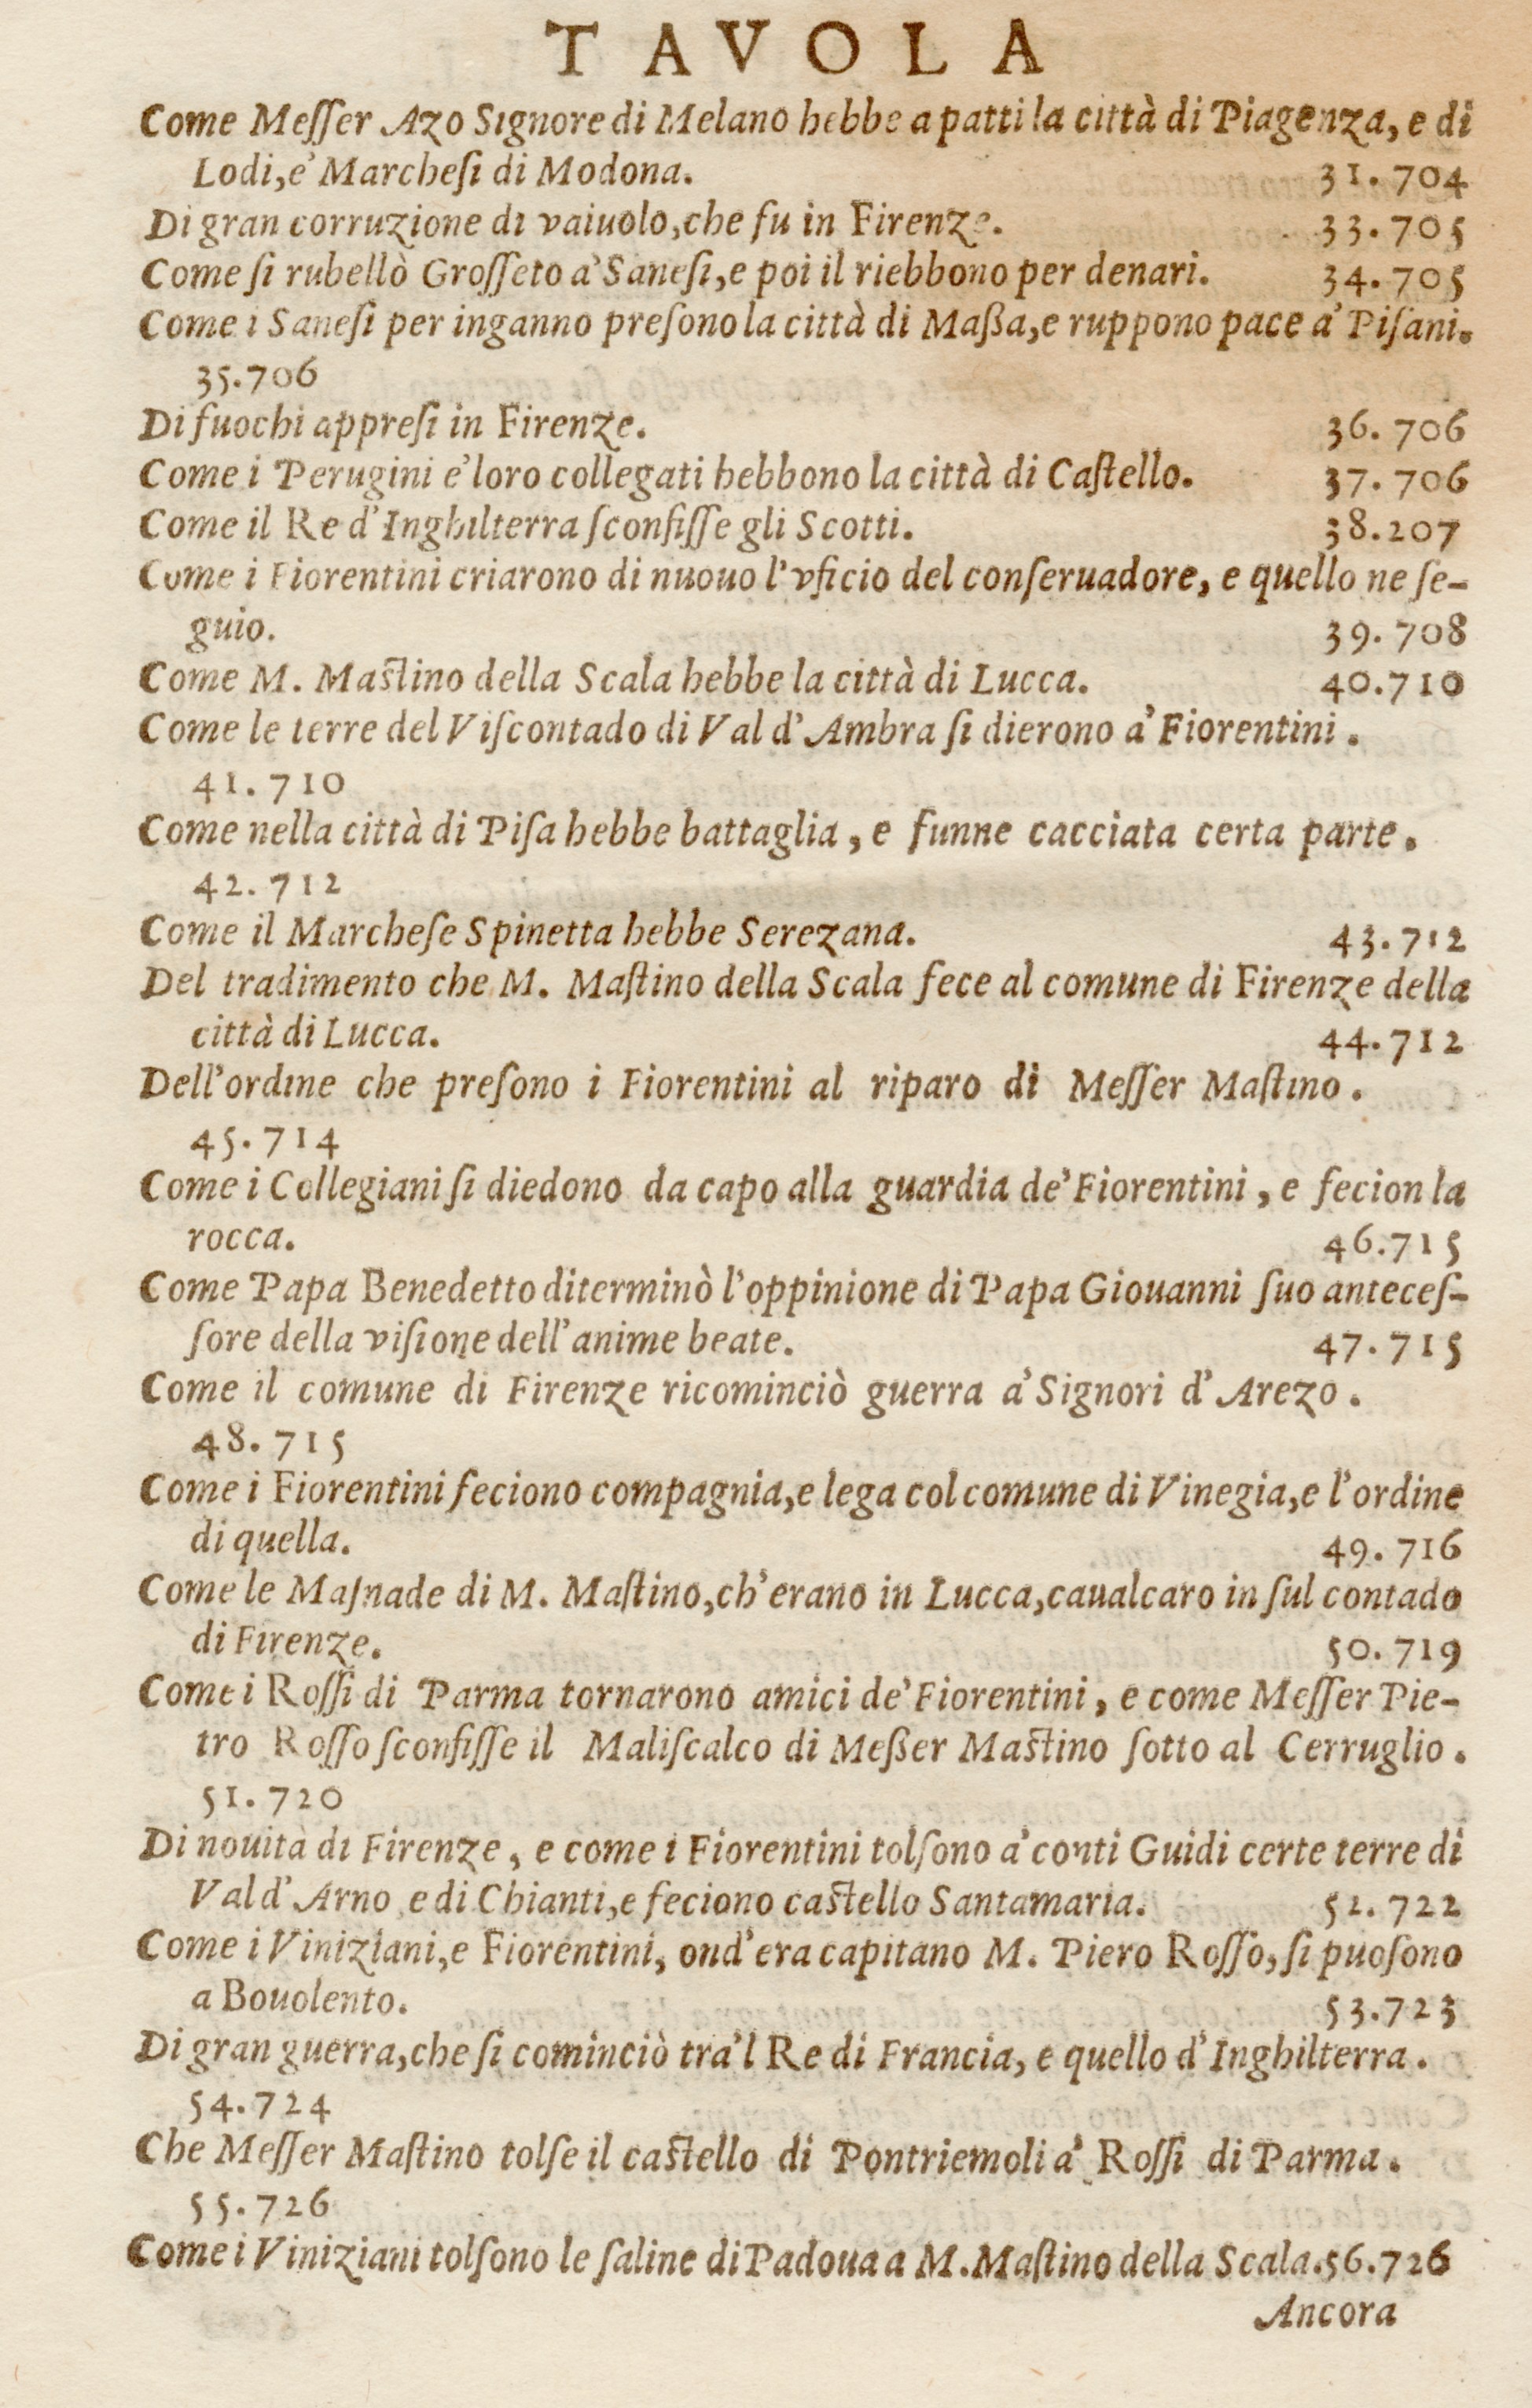 TAVOLA
Come Meſſer Azo Signore di Melano hebbe a patti la città di Piagenza, e di
Lodi, e' Marcheſi di Modona. 31. 704
Di gran corruzione di vaiuolo, che fu in Firenze. 33. 705
Come ſi rubellò Groſſeto a' Saneſi, e poi il riebbono per denari. 34. 705
Come i Saneſi per inganno preſono la città di Maßa, e ruppono pace a' Piſani.
35. 706
Di fuochi appreſi in Firenze. 36. 706
Come i Perugini e' loro collegati hebbono la città di Caſtello. 37. 706
Come il Re d'Inghilterra ſconfiſſe gli Scotti. 38. 207
Come i Fiorentini criarono di nuouo l'vficio del conſeruadore, e quello ne ſe-
guio. 39. 708
Come M. Maſtino della Scala hebbe la città di Lucca. 40. 710
Come le terre del Viſcontado di Val d'Ambra ſi dierono a' Fiorentini.
41. 710
Come nella città di Piſa hebbe battaglia, e funne cacciata certa parte.
42. 712
Come il Marcheſe Spinetta hebbe Serezana. 43. 712
Del tradimento che M. Maſtino della Scala fece al comune di Firenze della
città di Lucca. 44. 712
Dell'ordine che preſono i Fiorentini al riparo di Meſſer Maſtino.
45. 714
Come i Collegiani ſi diedono da capo alla guardia de' Fiorentini, e fecion la
rocca. 46. 715
Come Papa Benedetto diterminò l'oppinione di Papa Giouanni ſuo anteceſ-
ſore della viſione dell'anime beate. 47. 715
Come il comune di Firenze ricominciò guerra a' Signori d'Arezo.
48. 715
Come i Fiorentini feciono compagnia, e lega col comune di Vinegia, e l'ordine
di quella. 49. 716
Come le Maſnade di M. Maſtino, ch'erano in Lucca, caualcaro in ſul contado
di Firenze. 50. 719
Come i Roſſi di Parma tornarono amici de' Fiorentini, e come Meſſer Pie-
tro Roſſo ſconfiſſe il Maliſcalco di Meßer Maſtino ſotto al Cerruglio.
51. 720
Di nouità di Firenze, e come i Fiorentini tolſono a' conti Guidi certe terre di
Val d'Arno, e di Chianti, e feciono caſtello Santamaria. 52. 722
Come i Viniziani, e Fiorentini, ond'era capitano M. Piero Roſſo, ſi puoſono
a Bouolento. 53. 723
Di gran guerra, che ſi cominciò tra'l Re di Francia, e quello d'Inghilterra.
54. 724
Che Meſſer Maſtino tolſe il caſtello di Pontriemoli a' Roſſi di Parma.
55. 726
Come i Viniziani tolſono le ſaline di Padoua a M. Maſtino della Scala. 56. 726
Ancora